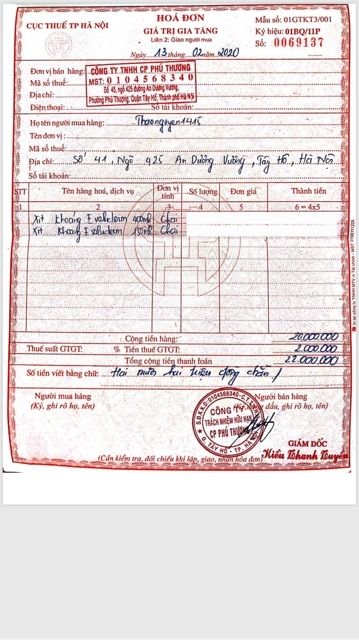 CỤC THUẾ TP HÀ NỘI
HOÁ ĐƠN
GIÁ TRỊ GIA TĂNG
Liên 2: Giao người mua
Ngày 13 tháng 02 năm 2020
Mẫu số: 01GTKT3/001
Ký hiệu: 01BQ/11P
Số: 0069137
Đơn vị bán hàng:
Mã số thuế:
Địa chỉ:
Điện thoại: Số tài khoản:
CÔNG TY TNHH CP PHÚ THƯƠNG
MST: 0104568340
Số 45, ngõ 425 đường An Dương Vương,
Phường Phú Thượng, Quận Tây Hồ, Thành phố Hà Nội
Họ tên người mua hàng: Thaonguyen1415
Tên đơn vị:
Mã số thuế:
Địa chỉ: Số 41, Ngõ 425 An Dương Vương, Tây Hồ, Hà Nội
Số tài khoản:
STT Tên hàng hoá, dịch vụ Đơn vị tính Số lượng Đơn giá Thành tiền
1 2 3 4 5 6 = 4x5
Xịt Khoáng Evoluderm 400ml Chai
Xịt Khoáng Evoluderm 150ml Chai
Cộng tiền hàng: 20.000.000
Thuế suất GTGT: % Tiền thuế GTGT: 2.000.000
Tổng cộng tiền thanh toán 22.000.000
Số tiền viết bằng chữ: Hai mươi hai triệu đồng chẵn /
Người mua hàng
(Ký, ghi rõ họ, tên)
Người bán hàng
dấu, ghi rõ họ, tên)
S.Đ.K.K.D: 0104568340-C.T.T.N.H.H
CÔNG TY
TRÁCH NHIỆM HỮU HẠN
CP PHÚ THƯƠNG
Q. TÂY HỒ - TP. HÀ NỘI
GIÁM ĐỐC
Kiều Thanh Huyền
(Cần kiểm tra, đối chiếu khi lập, giao, nhận hóa đơn)